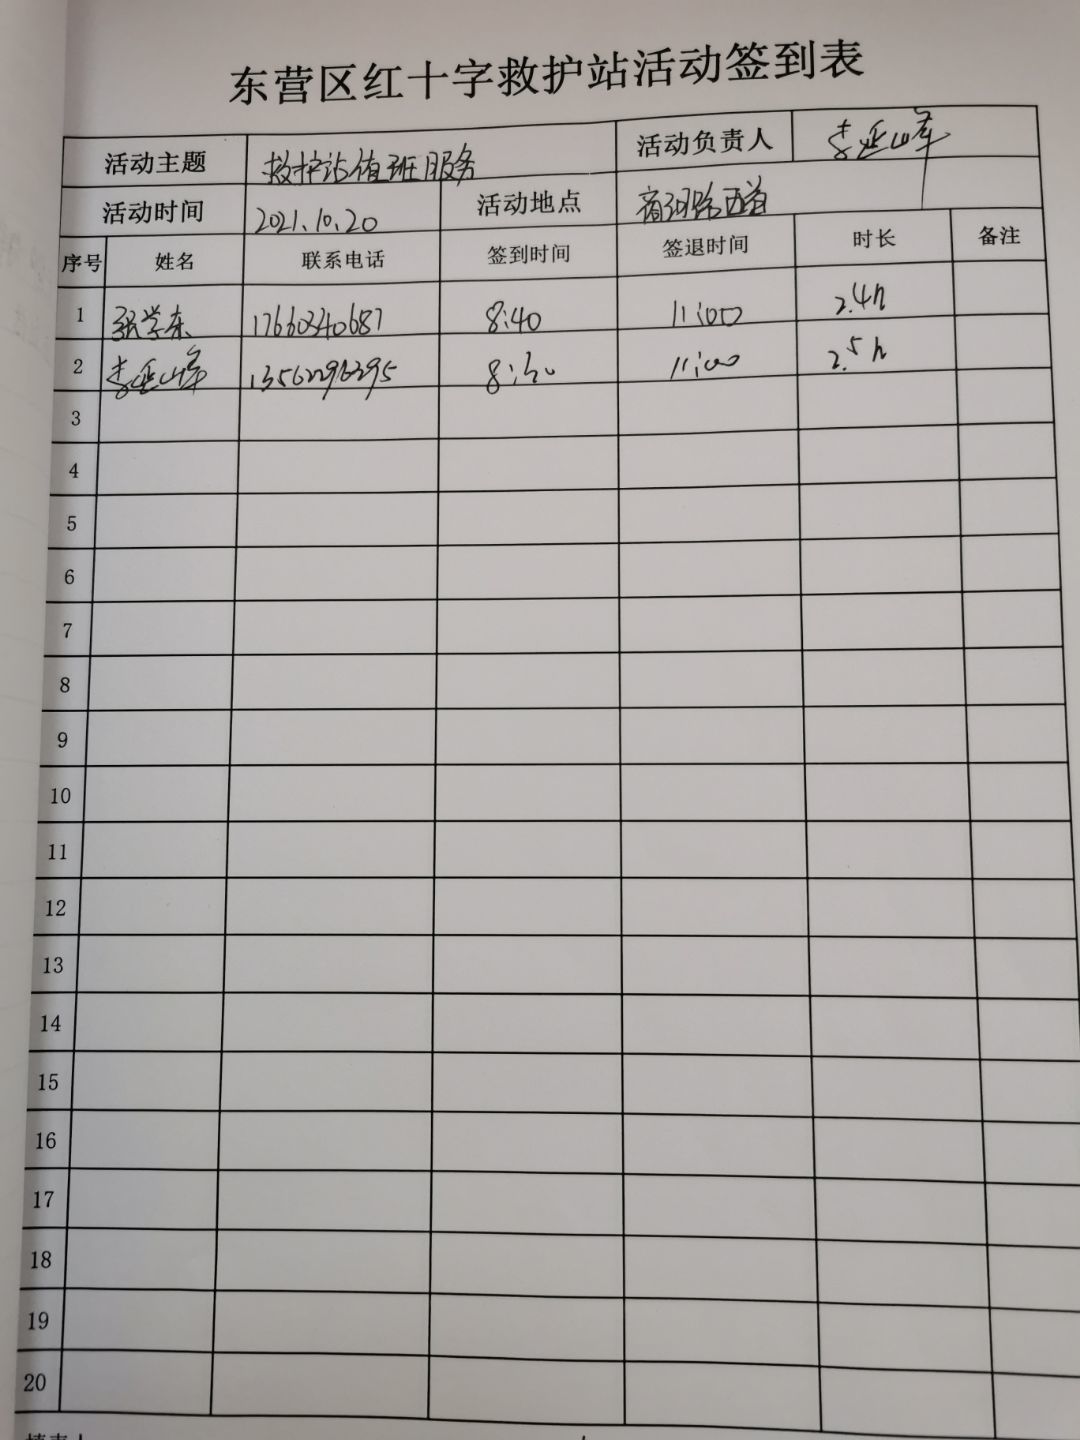 东营区红十字救护站活动签到表
活动主题 救护站值班服务 活动负责人 李延峰
活动时间 2021.10.20 活动地点 路西首
序号 姓名 联系电话 签到时间 签退时间 时长 备注
1 张学东 17660340687 8:40 11:00 2.4h
2 李延峰 13562296295 8:30 11:00 2.5h
3
4
5
6
7
8
9
10
11
12
13
14
15
16
17
18
19
20
填表人